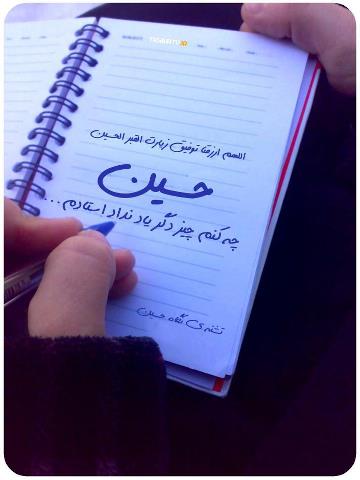 اللهم ارزقنا توفیق زیارت اهبر الحسین
حسین
چه کنم چیز دگر یاد نداد استادم ...
تشنه ی نگاه حسین